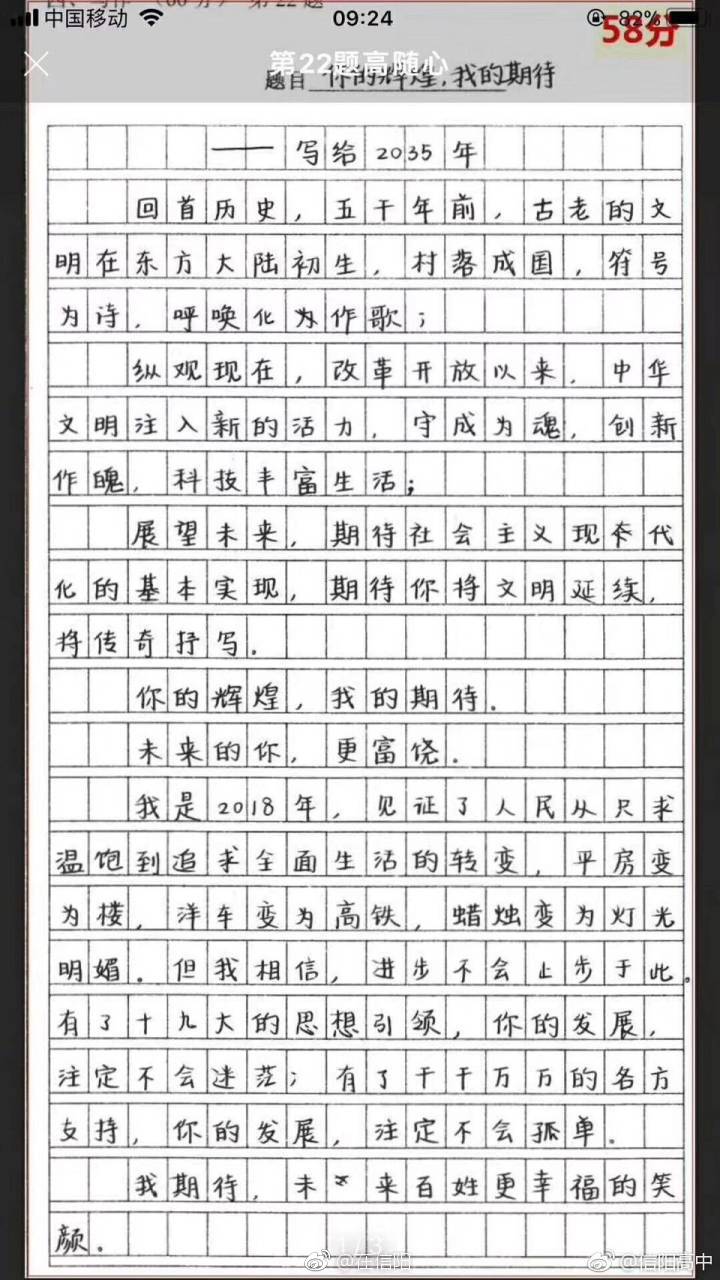 中国移动 09:24 82%
58分
四、写作（60分）第22题
第22题高随心
题目 你的辉煌，我的期待
——写给2035年
回首历史，五千年前，古老的文
明在东方大陆初生，村落成国，符号
为诗，呼唤化为作歌；
纵观现在，改革开放以来，中华
文明注入新的活力，守成为魂，创新
作魄，科技丰富生活；
展望未来，期待社会主义现代
化的基本实现，期待你将文明延续，
将传奇抒写。
你的辉煌，我的期待。
未来的你，更富饶。
我是2018年，见证了人民从只求
温饱到追求全面生活的转变，平房变
为楼，洋车变为高铁，蜡烛变为灯光
明媚。但我相信，进步不会止步于此。
有了十九大的思想引领，你的发展，
注定不会迷茫；有了千千万万的各方
支持，你的发展，注定不会孤单。
我期待，未来百姓更幸福的笑
颜。
1/3
@在信阳
@信阳高中